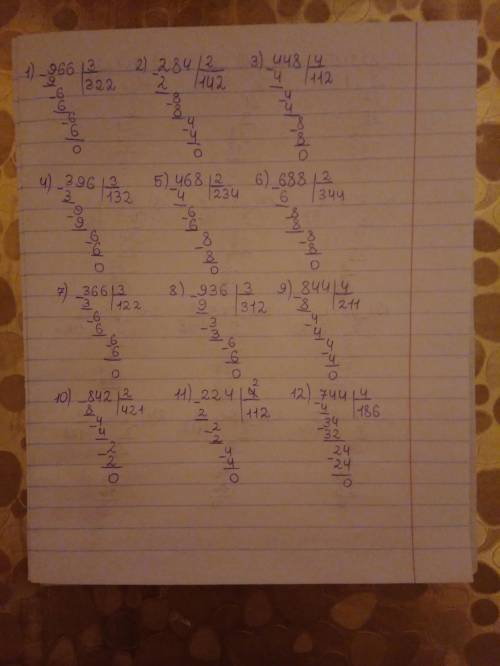 1) -966|3 2) -284|2 3) -448|4
9 |322 2 |142 4 |112
-6 -8 -4
6 8 4
-6 -4 -8
6 4 8
0 0 0
4) -396|3 5) -468|2 6) -688|2
3 |132 4 |234 6 |344
-9 -6 -8
9 6 8
-6 -8 -8
6 8 8
0 0 0
7) -366|3 8) -936|3 9) -844|4
3 |122 9 |312 8 |211
-6 -3 -4
6 3 4
-6 -6 -4
6 6 4
0 0 0
10) -842|2 11) -224|2 12) -744|4
8 |421 2 |112 4 |186
-4 -2 -34
4 2 32
-2 -4 -24
2 4 24
0 0 0